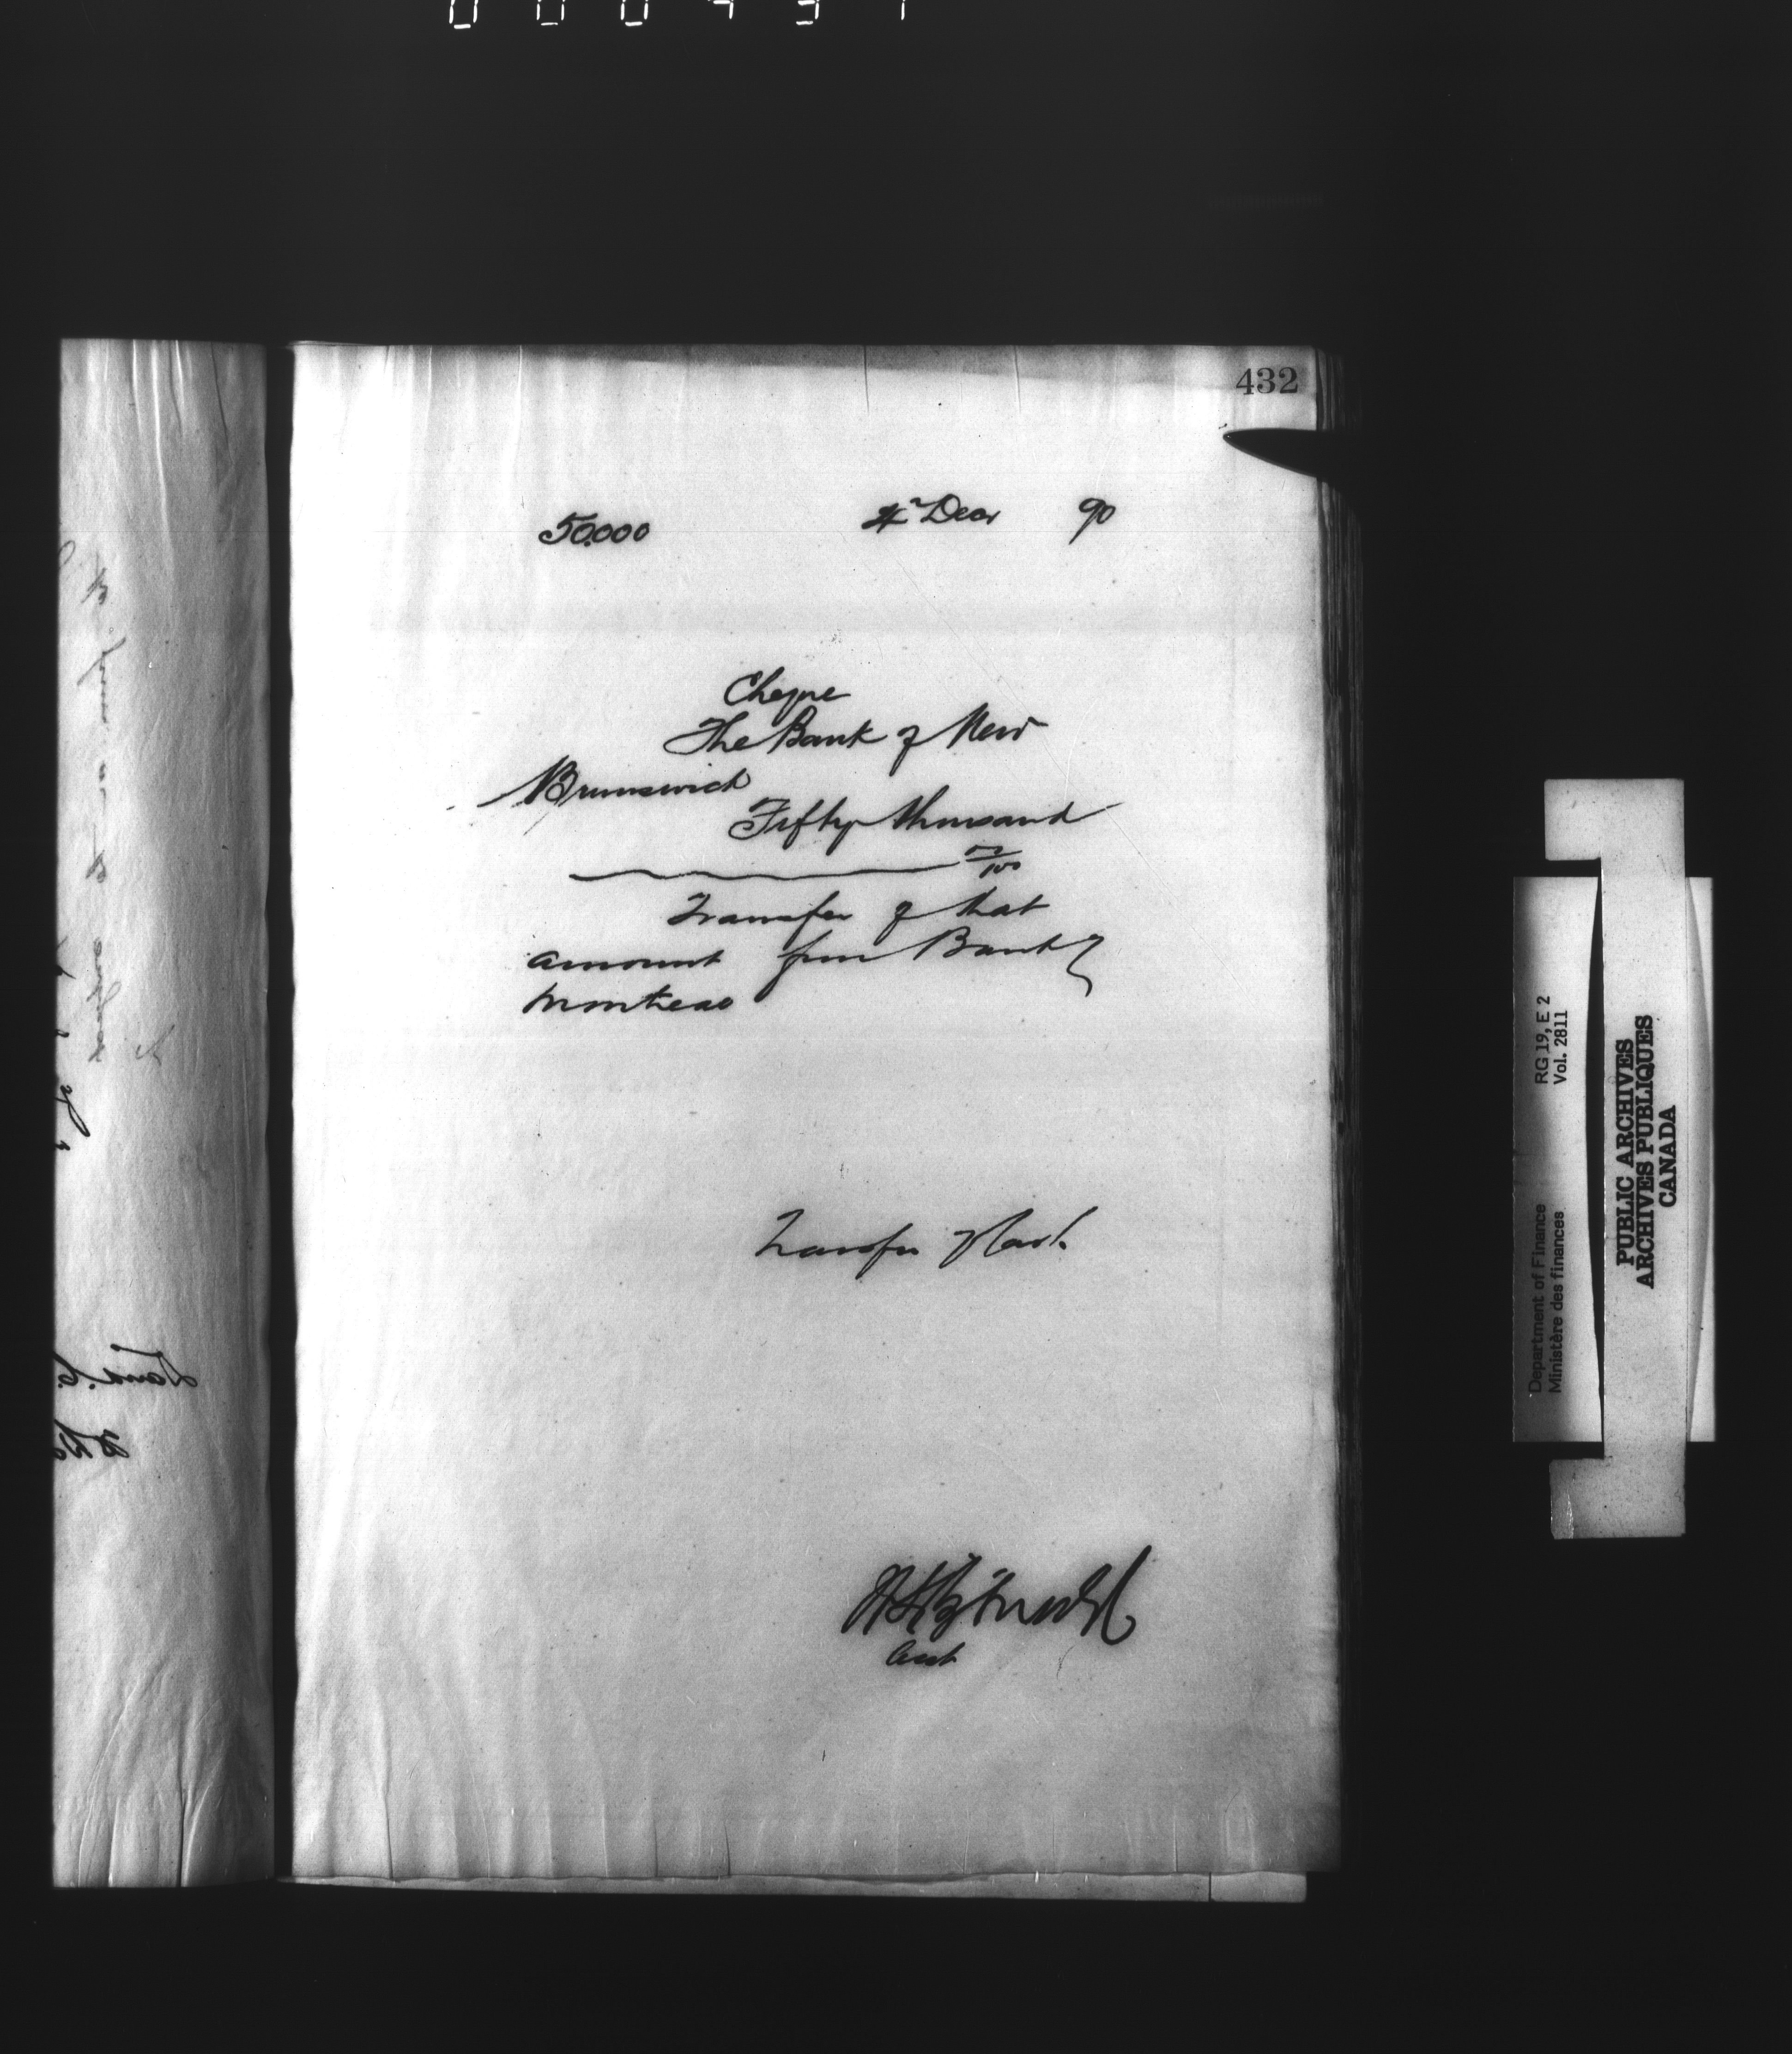 432
50.000 4th Decr 90
Cheque
The Bank of New
Brunswick
Fifty thousand
00/100
Transfer of that
amount from Bank of
Montreal
Transfer of Cash
Asst
Department of Finance RG 19, E 2
Ministère des finances Vol. 2811
PUBLIC ARCHIVES
ARCHIVES PUBLIQUES
CANADA